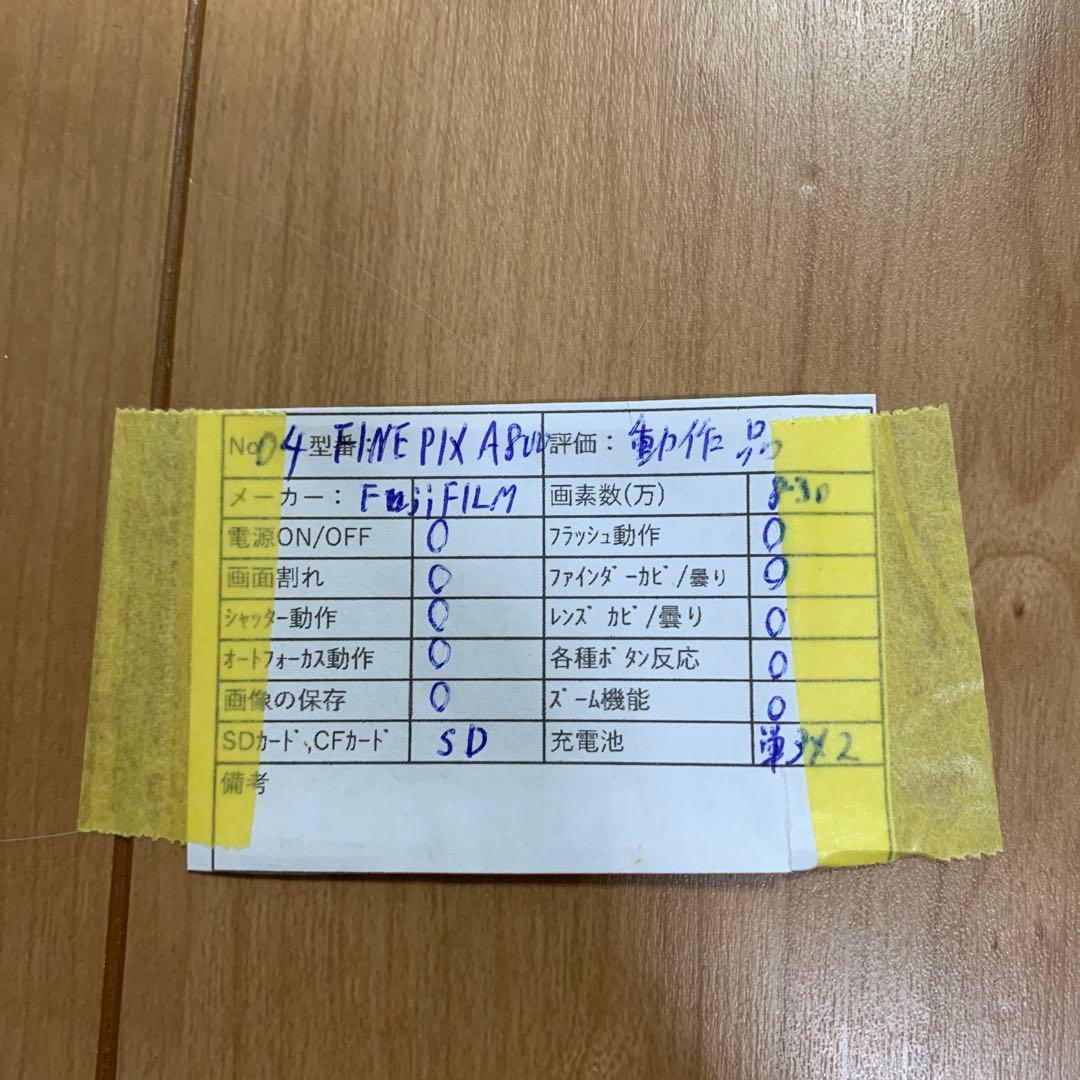 No 04 型番: FINEPIX A800 評価: 動作品
メーカー: FujiFILM 画素数(万) 830
電源ON/OFF 〇 フラッシュ動作 〇
画面割れ 〇 ファインダーカビ/曇り 〇
シャッター動作 〇 レンズカビ/曇り 〇
オートフォーカス動作 〇 各種ボタン反応 〇
画像の保存 〇 ズーム機能 〇
SDカード,CFカード SD 充電池 単3×2
備考